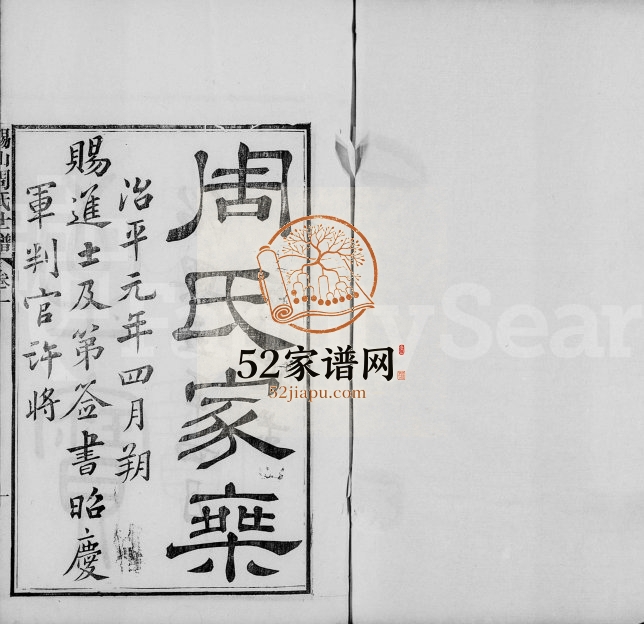 周氏家乘
治平元年四月朔
賜進士及第签書昭慶
軍判官许将
錫山周氏世譜 卷一
52家谱网
52jiapu.com
ySear